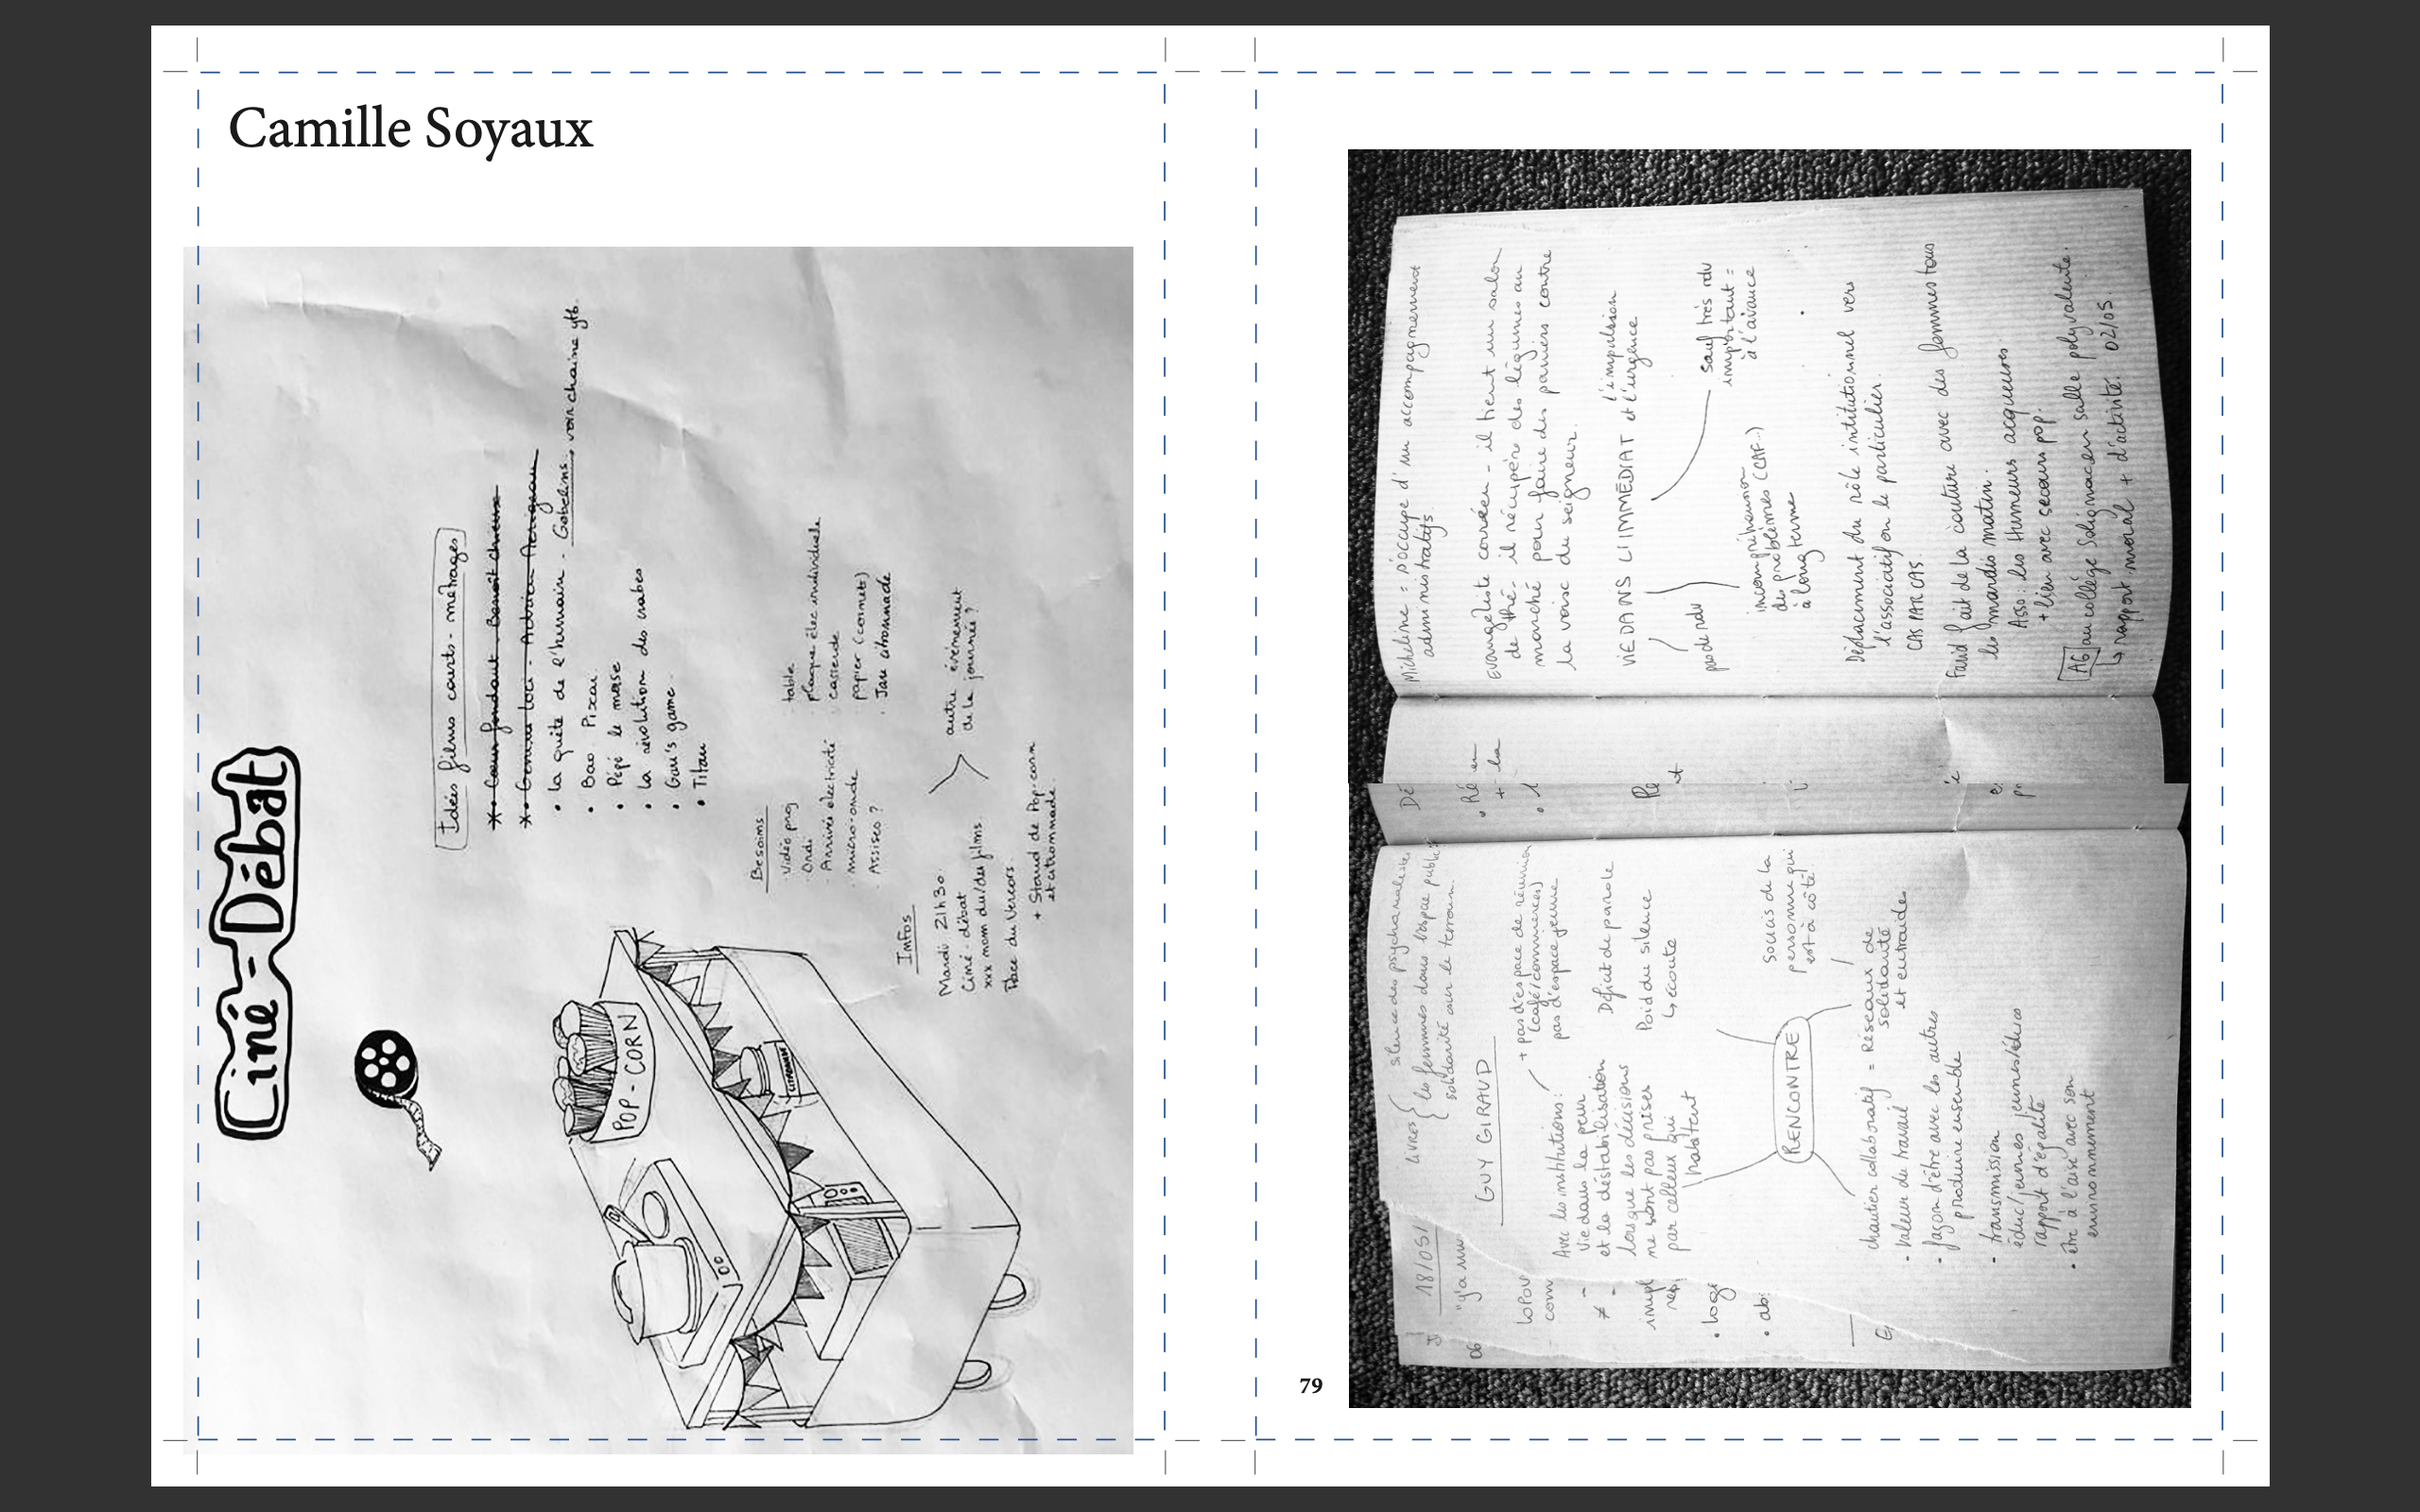 Camille Soyaux
Ciné-Débat
Idées films courts-métrages
Coeur fondant - Benoît Chieux
Genius Loci - Adrien Merigeau
• la quête de l'humain - Gobelins → voir chaine ytb.
• Bao Pixar
• Pépé le morse
• La révolution des crabes
• Gari's game
• Titan
Besoins
- Vidéo proj
- Ordi
- Arrivée électricité
- micro-onde
- Assises ?
- table
- plaque élec individuelle
- casserole
- papier (cornets)
- Jau citronnade
Infos
Mardi 21h30
Ciné-débat
xxx nom du/des films
Place du Vercors
autre événement
de la journée ?
+ Stand de Pop-corn
et citronnade
POP-CORN
79
18/05/
"y'a un
LIVRES
silence des psychanalystes
les femmes dans l'espace public
solidarité sur le terrain.
GUY GIRAUD
Avec les institutions :
Vie dans la peur
et la déstabilisation
lorsque les décisions
ne sont pas prises
par celleux qui
habitent
+ pas d'espace de réunion
(café/commerces)
pas d'espace jeune
Déficit de parole
Poid du silence
↳ écoute
RENCONTRE
soucis de la
personne qui
est à côté
chantier collaboratif = Réseaux de
solidarité
et entraide
• valeur du travail
• façon d'être avec les autres
produire ensemble
• transmission
éduc/jeunes jeunes/éducs
rapport d'égalité
• être à l'aise avec son
environnement
Micheline = s'occupe d'un accompagnement
administratifs
evangéliste corréen - il tient un salon
de thé - il récupère des légumes au
marché pour faire des paniers contre
la voise du seigneur.
VIE DANS L'IMMÉDIAT
l'impulsion
et l'urgence
pas de rdv
incompréhension
des problèmes (CAF..)
à long terme
sauf très rdv
important =
à l'avance
Déplacement du rôle institutionnel vers
l'associatif ou le particulier.
CAS PAR CAS.
Farid fait de la couture avec des femmes tous
les mardis matin.
Asso : les Humeurs acqueuses
+ lien avec secours pop.
AG au collège salle polyvalente.
↳ rapport moral + d'activité. 02/05